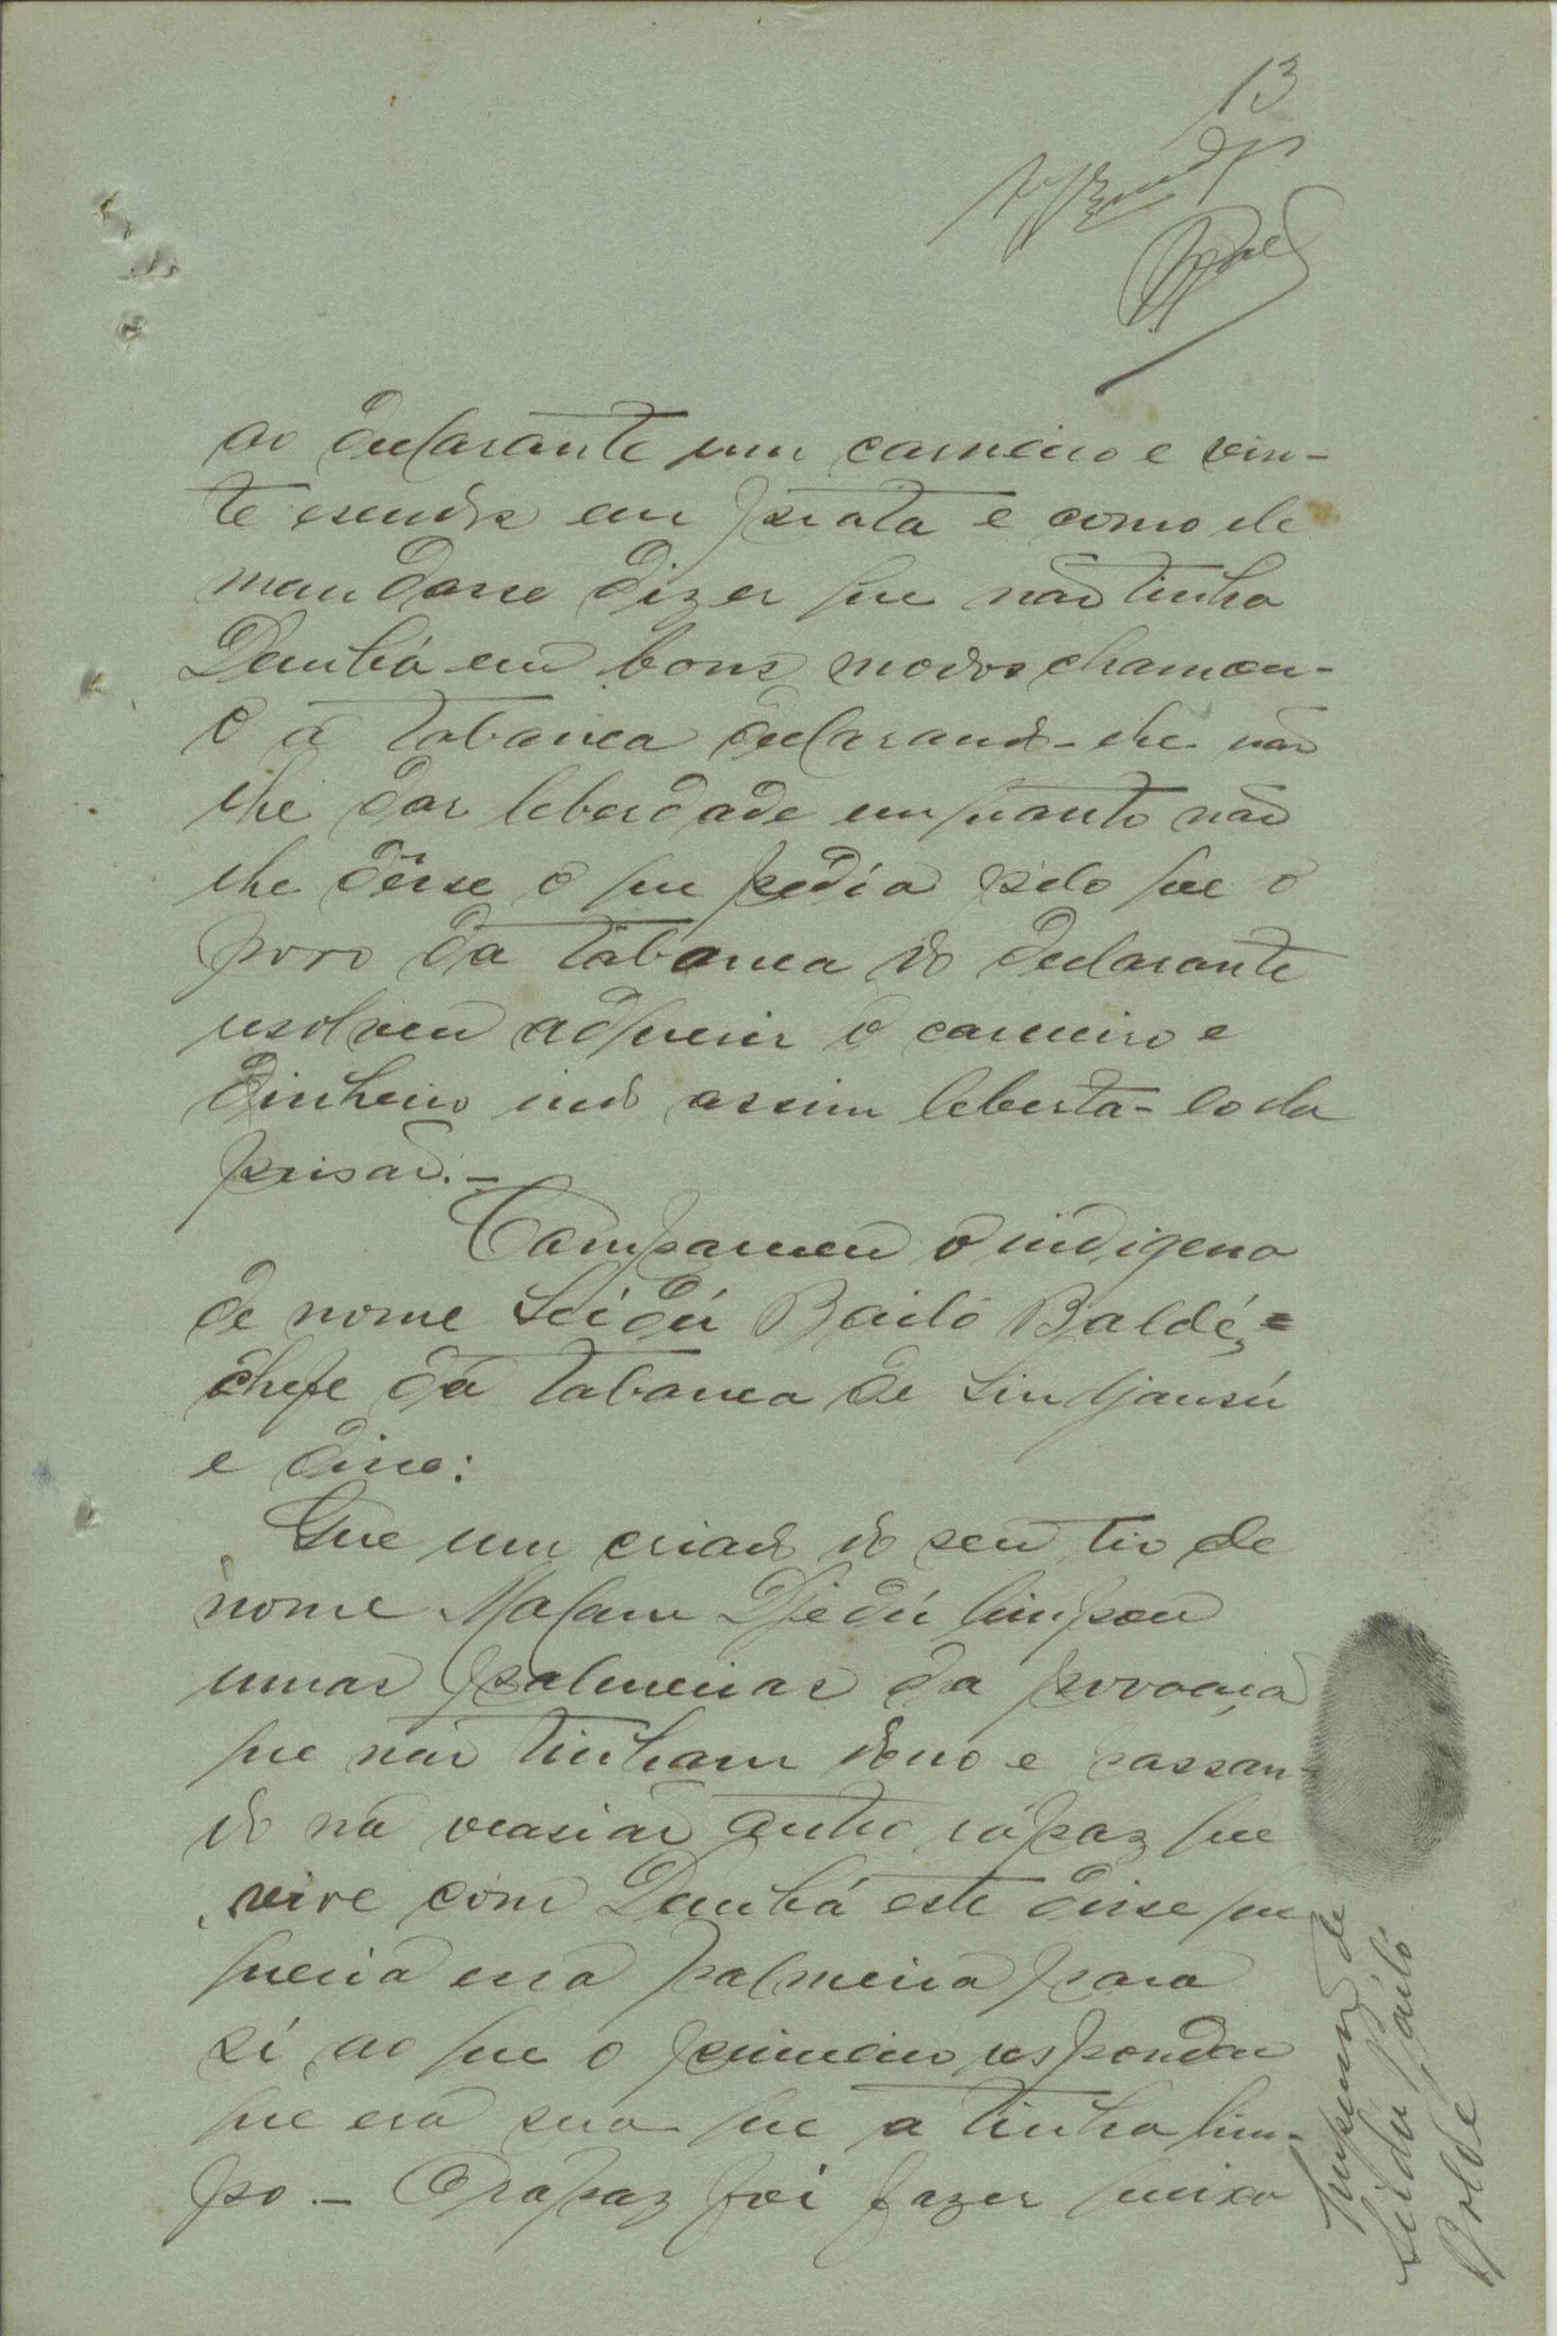 13
ao declarante um carneiro e vin-
te escudos em prata e como ele
mandasse dizer que não tinha
Dembá em bons modos chamou-
o á tabanca declarando-lhe não
lhe dar leberdade emquanto não
lhe désse o que pedia pelo que o
povo da tabanca do declarante
resolveu adquerir o carneiro e
dinheiro indo assim leberta-lo da
prisão.-
Compareceu o indigena
de nome Seidú Bailó Baldé,=
chefe da tabanca de Sin[...]
e disse:
Que um criado do seu tio de
nome Malam Djedú limpou
umas palmeiras da povoação
que não tinham dono e passan-
do na ocasião outro rapaz que
vive com Dembá este disse que
queria essa palmeira para
si ao que o primeiro respondeu
que era sua que a tinha lim-
po.- O rapaz foi fazer queixa
Impressão de
Seidú Bailó
Baldé